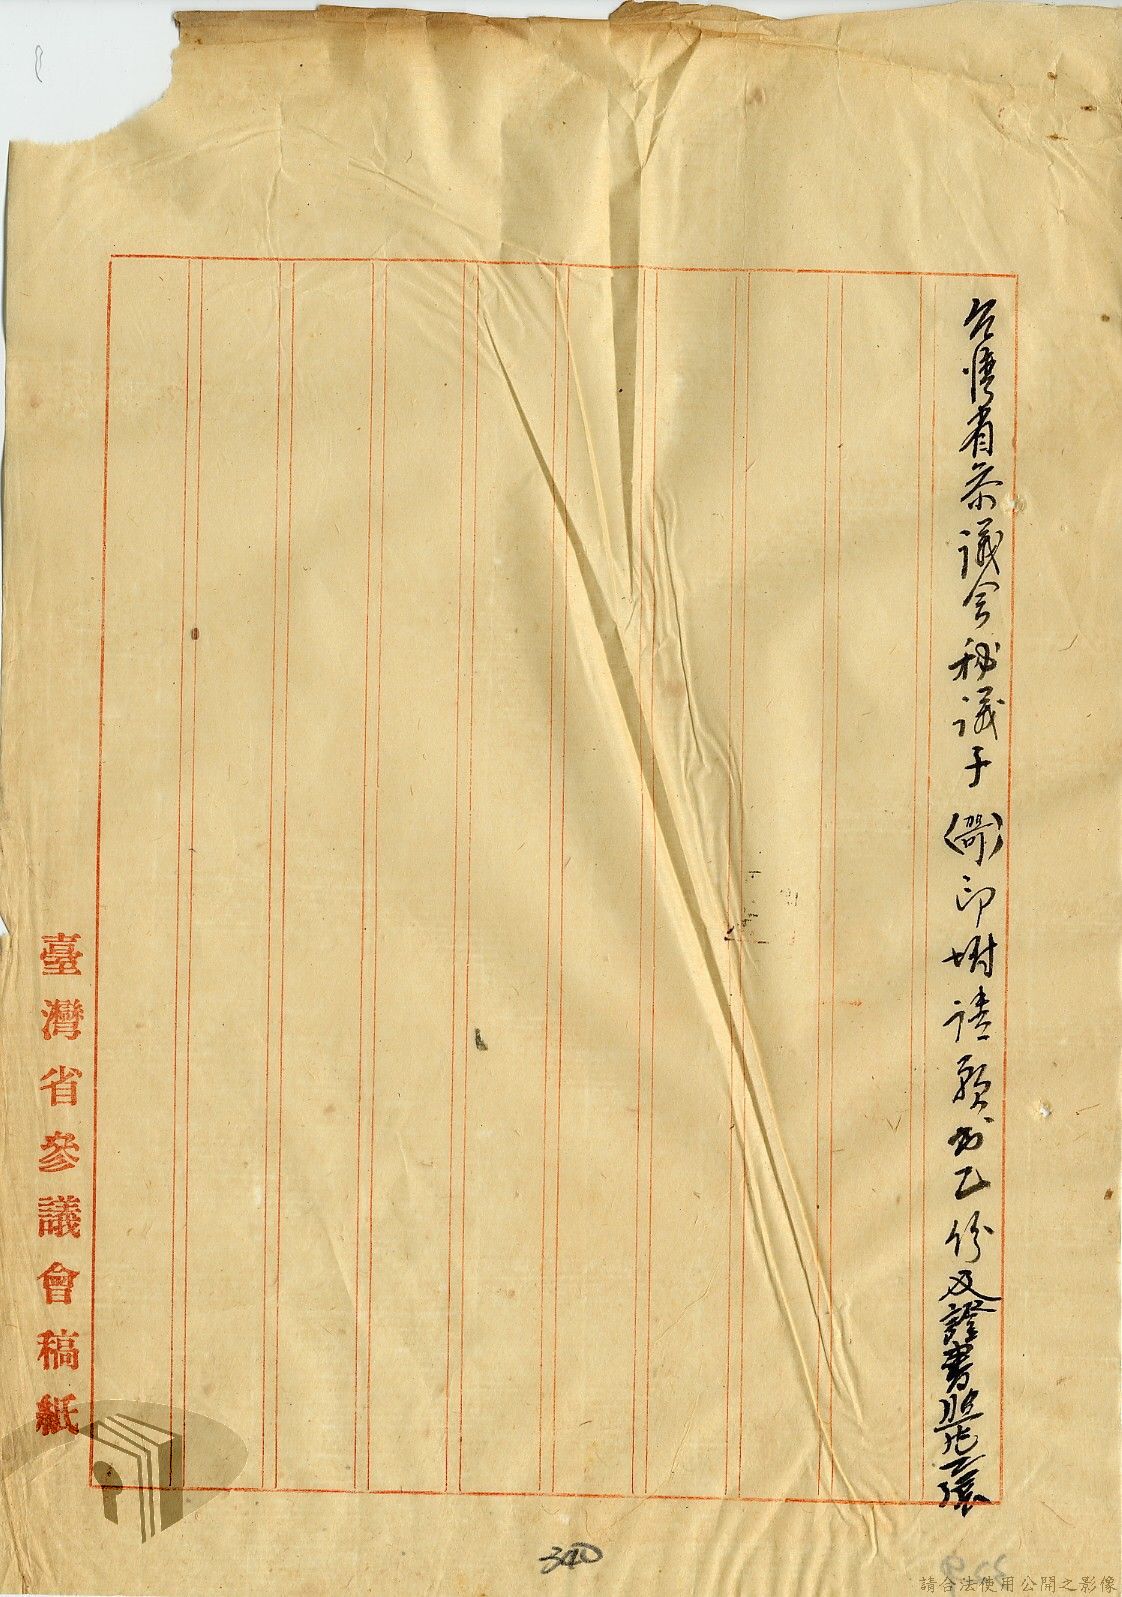 台灣省參議會秘議子(銜)印附請願書乙份及證書照片二張
臺灣省參議會稿紙
340
請合法使用公開之影像